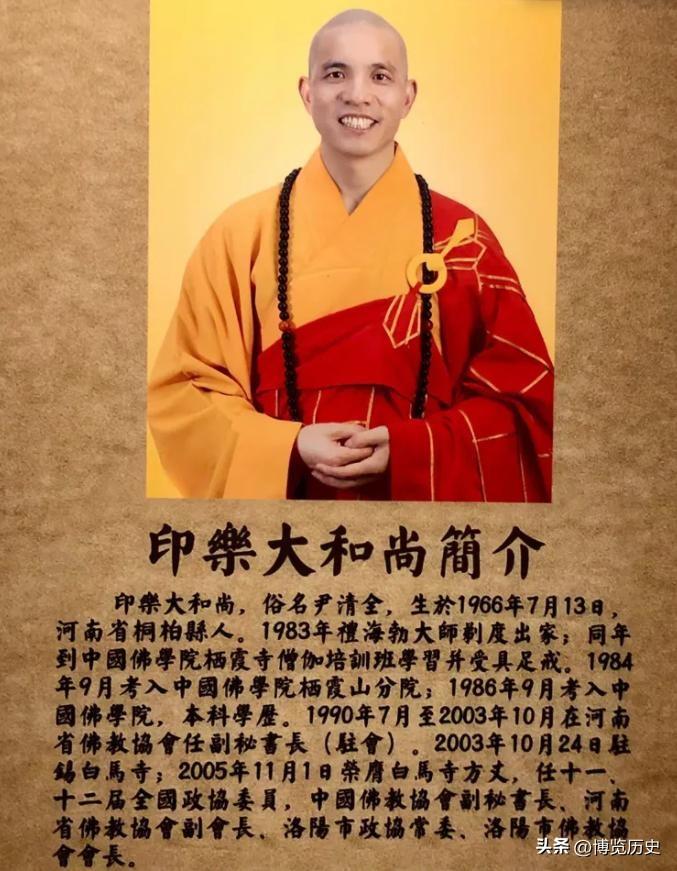 印樂大和尚簡介
印樂大和尚，俗名尹清全，生於1966年7月13日，
河南省桐柏縣人。1983年禮海勃大師剃度出家；同年
到中國佛學院栖霞寺僧伽培訓班學習并受具足戒。1984
年9月考入中國佛學院栖霞山分院；1986年9月考入中
國佛學院，本科學歷。1990年7月至2003年10月在河南
省佛教協會任副秘書長（駐會）。2003年10月24日駐
錫白馬寺；2005年11月1日榮膺白馬寺方丈，任十一、
十二届全國政協委員，中國佛教協會副秘書長、河南
省佛教協會副會長、洛陽市政協常委、洛陽市佛教協
會會長。
头条 @博览历史